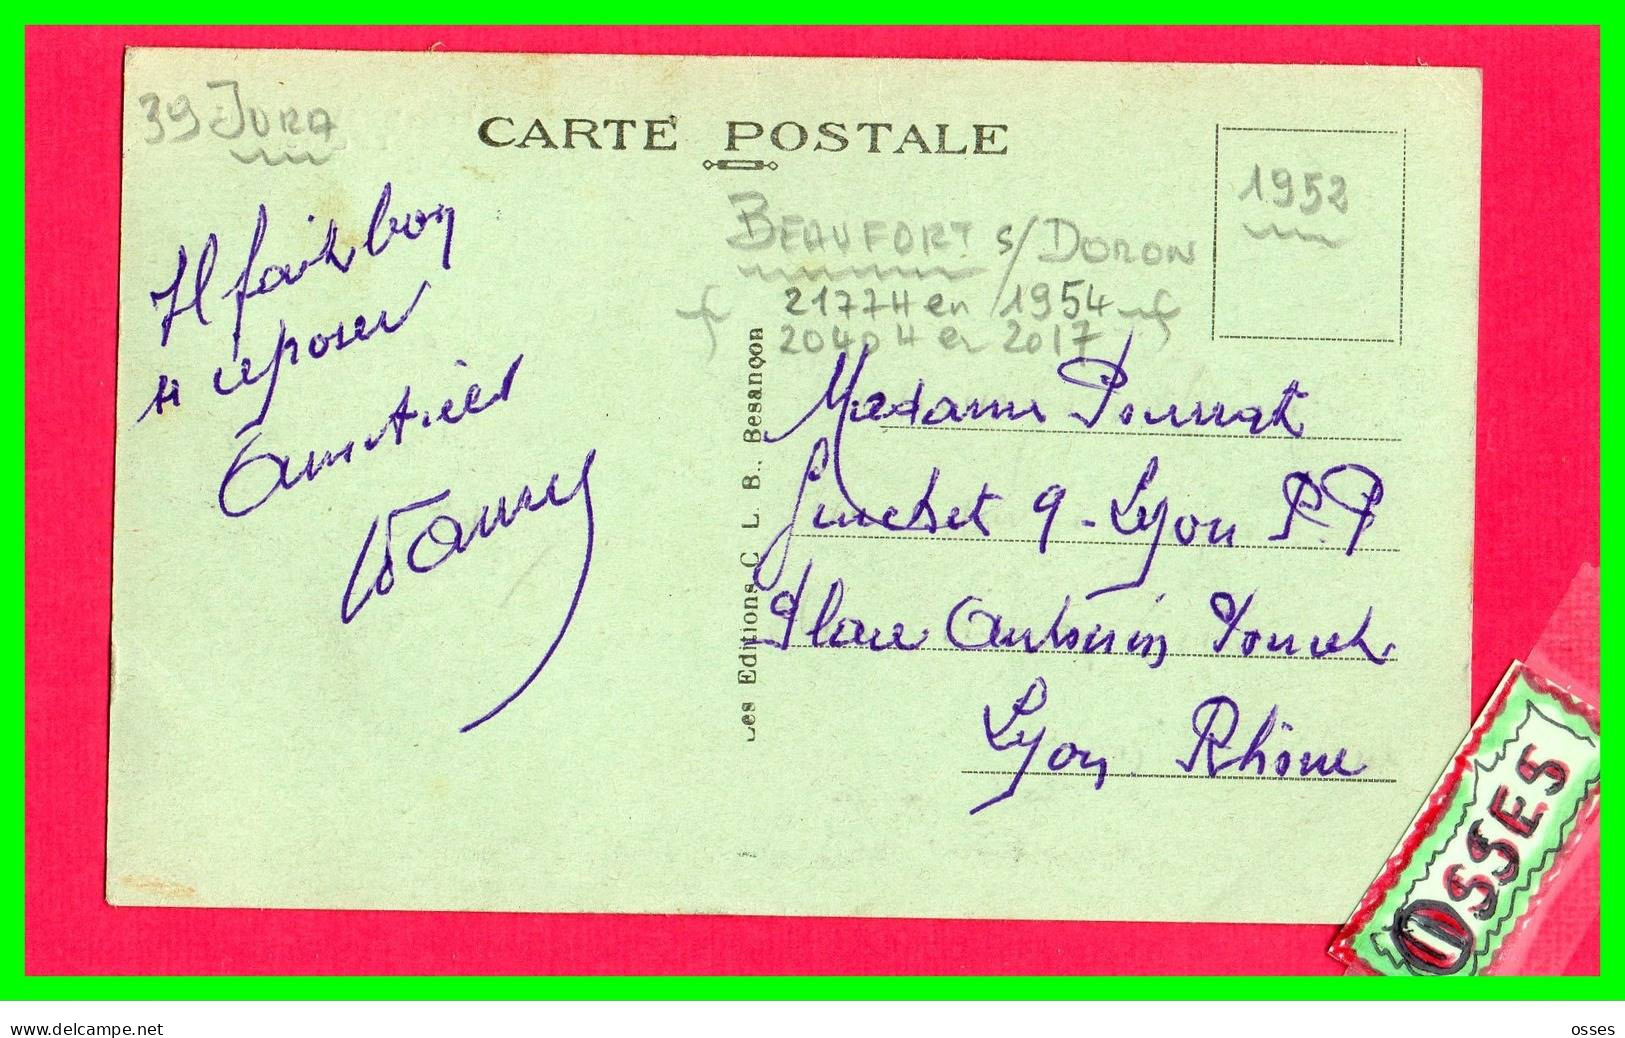 39 JURA
CARTE POSTALE
1952
BEAUFORT s/DORON
2177H en 1954
2040H en 2017
Il fait bon
se reposer
Amitiés
Les Editions C. L. B., Besançon
Madame
Guichet 9 - Lyon R.P
Place Antonin Poncet
Lyon Rhône
OSSES
www.delcampe.net
osses